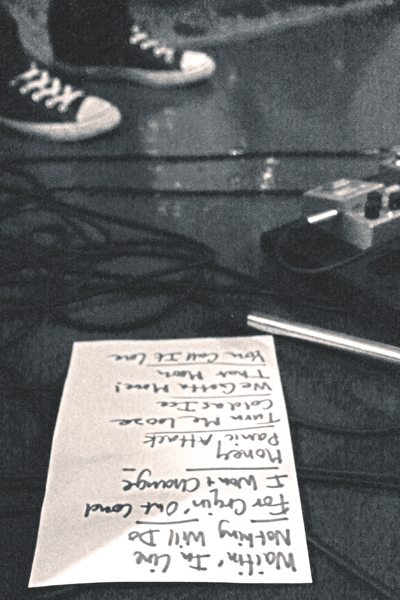 Waitin' In Line
Nothing Will Do
For Cryin' Out Loud
I Won't Change
Money
Panic Attack
Turn Me Loose
Cold as Ice
We Gotta Move!
That Moon
You Call It Love